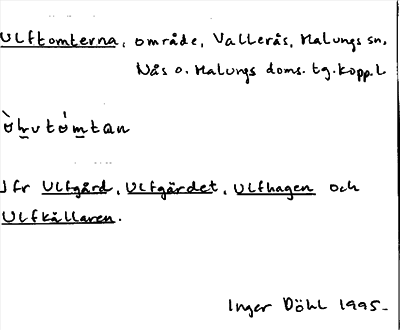 Ulftomterna, område, Vallerås, Malungs sn,
Nås o. Malungs doms. tg. Kopp. L
ò̀h̤vtó̀m̤tan
Jfr Ulfgård, Ulfgärdet, Ulfhagen och
Ulfkällaren.
Inger Döhl 1995-